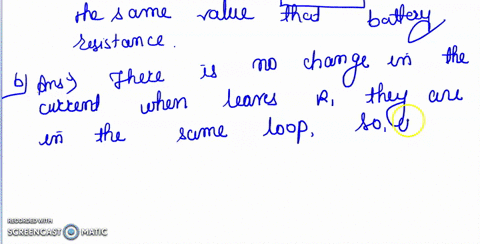 the same value that battery
resistance.
b) Ans) There is no change in the
current when leaves R, they are
in the same loop, so,
RECORDED WITH
SCREENCAST MATIC